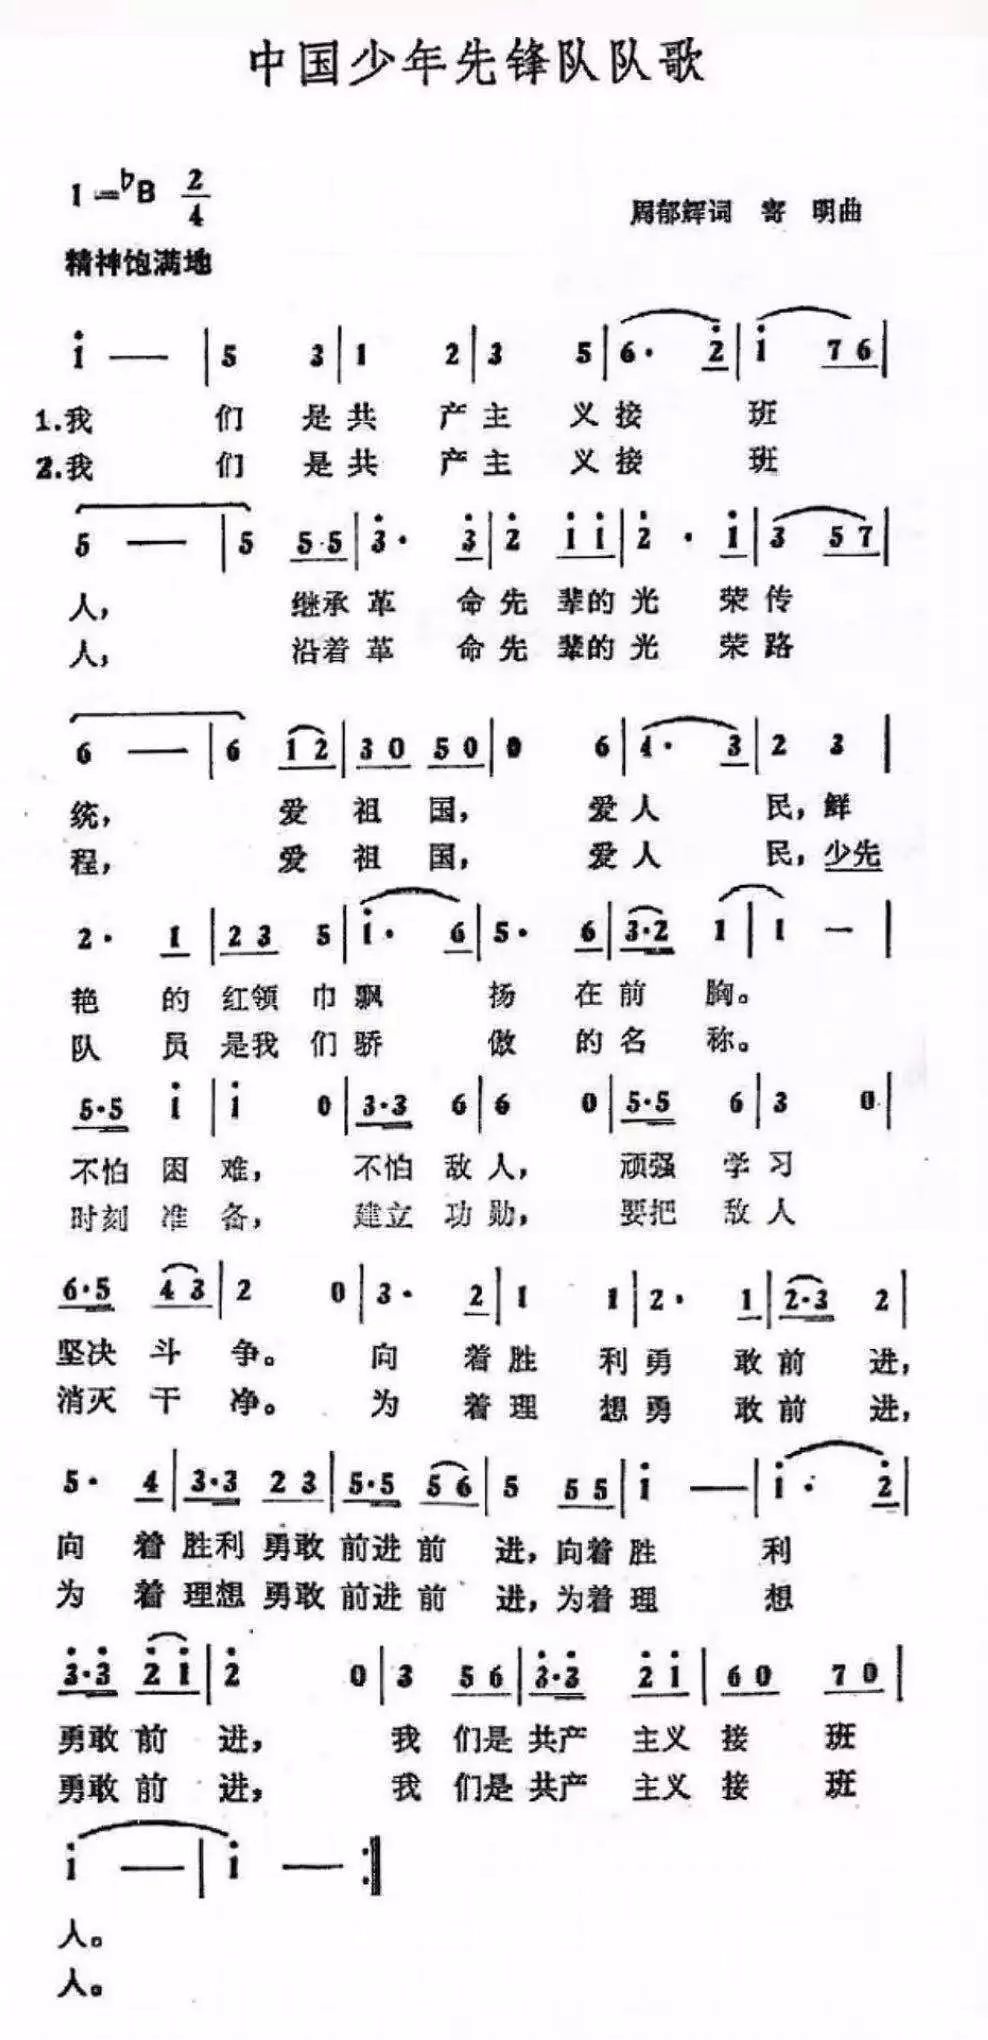 中国少年先锋队队歌
1=♭B 2/4
周郁辉词 寄 明曲
精神饱满地
i — | 5 3 | 1 2 | 3 5 | 6· 2̇ | i 7 6 |
1.我 们 是 共 产 主 义 接 班
2.我 们 是 共 产 主 义 接 班
5 — | 5 5·5 | 3̇· 3̇ | 2̇ i i | 2̇ · i | 3 5 7 |
人, 继承 革 命 先 辈的 光 荣 传
人, 沿着 革 命 先 辈的 光 荣 路
6 — | 6 1 2 | 3 0 5 0 | 0 6 | 4· 3 | 2 3 |
统, 爱 祖 国, 爱 人 民, 鲜
程, 爱 祖 国, 爱 人 民, 少先
2· 1 | 2 3 5 | i· 6 | 5· 6 | 3·2 1 | 1 — |
艳 的 红领 巾 飘 扬 在 前 胸。
队 员 是我 们 骄 傲 的 名 称。
5·5 i | i 0 | 3·3 6 | 6 0 | 5·5 6 | 3 0 |
不怕 困 难, 不怕 敌 人, 顽强 学 习
时刻 准 备, 建立 功 勋, 要把 敌 人
6·5 4 3 | 2 0 | 3· 2 | 1 1 | 2· 1 | 2·3 2 |
坚决 斗 争。 向 着 胜 利 勇 敢 前 进,
消灭 干 净。 为 着 理 想 勇 敢 前 进,
5· 4 | 3·3 2 3 | 5·5 5 6 | 5 5 5 | i — | i· 2̇ |
向 着 胜利 勇敢 前进 前 进, 向着 胜 利
为 着 理想 勇敢 前进 前 进, 为着 理 想
3̇·3̇ 2̇ i | 2̇ 0 | 3 5 6 | 3̇·3̇ 2̇ i | 6 0 7 0 |
勇敢 前 进, 我 们是 共产 主义 接 班
勇敢 前 进, 我 们是 共产 主义 接 班
i — | i — :|
人。
人。